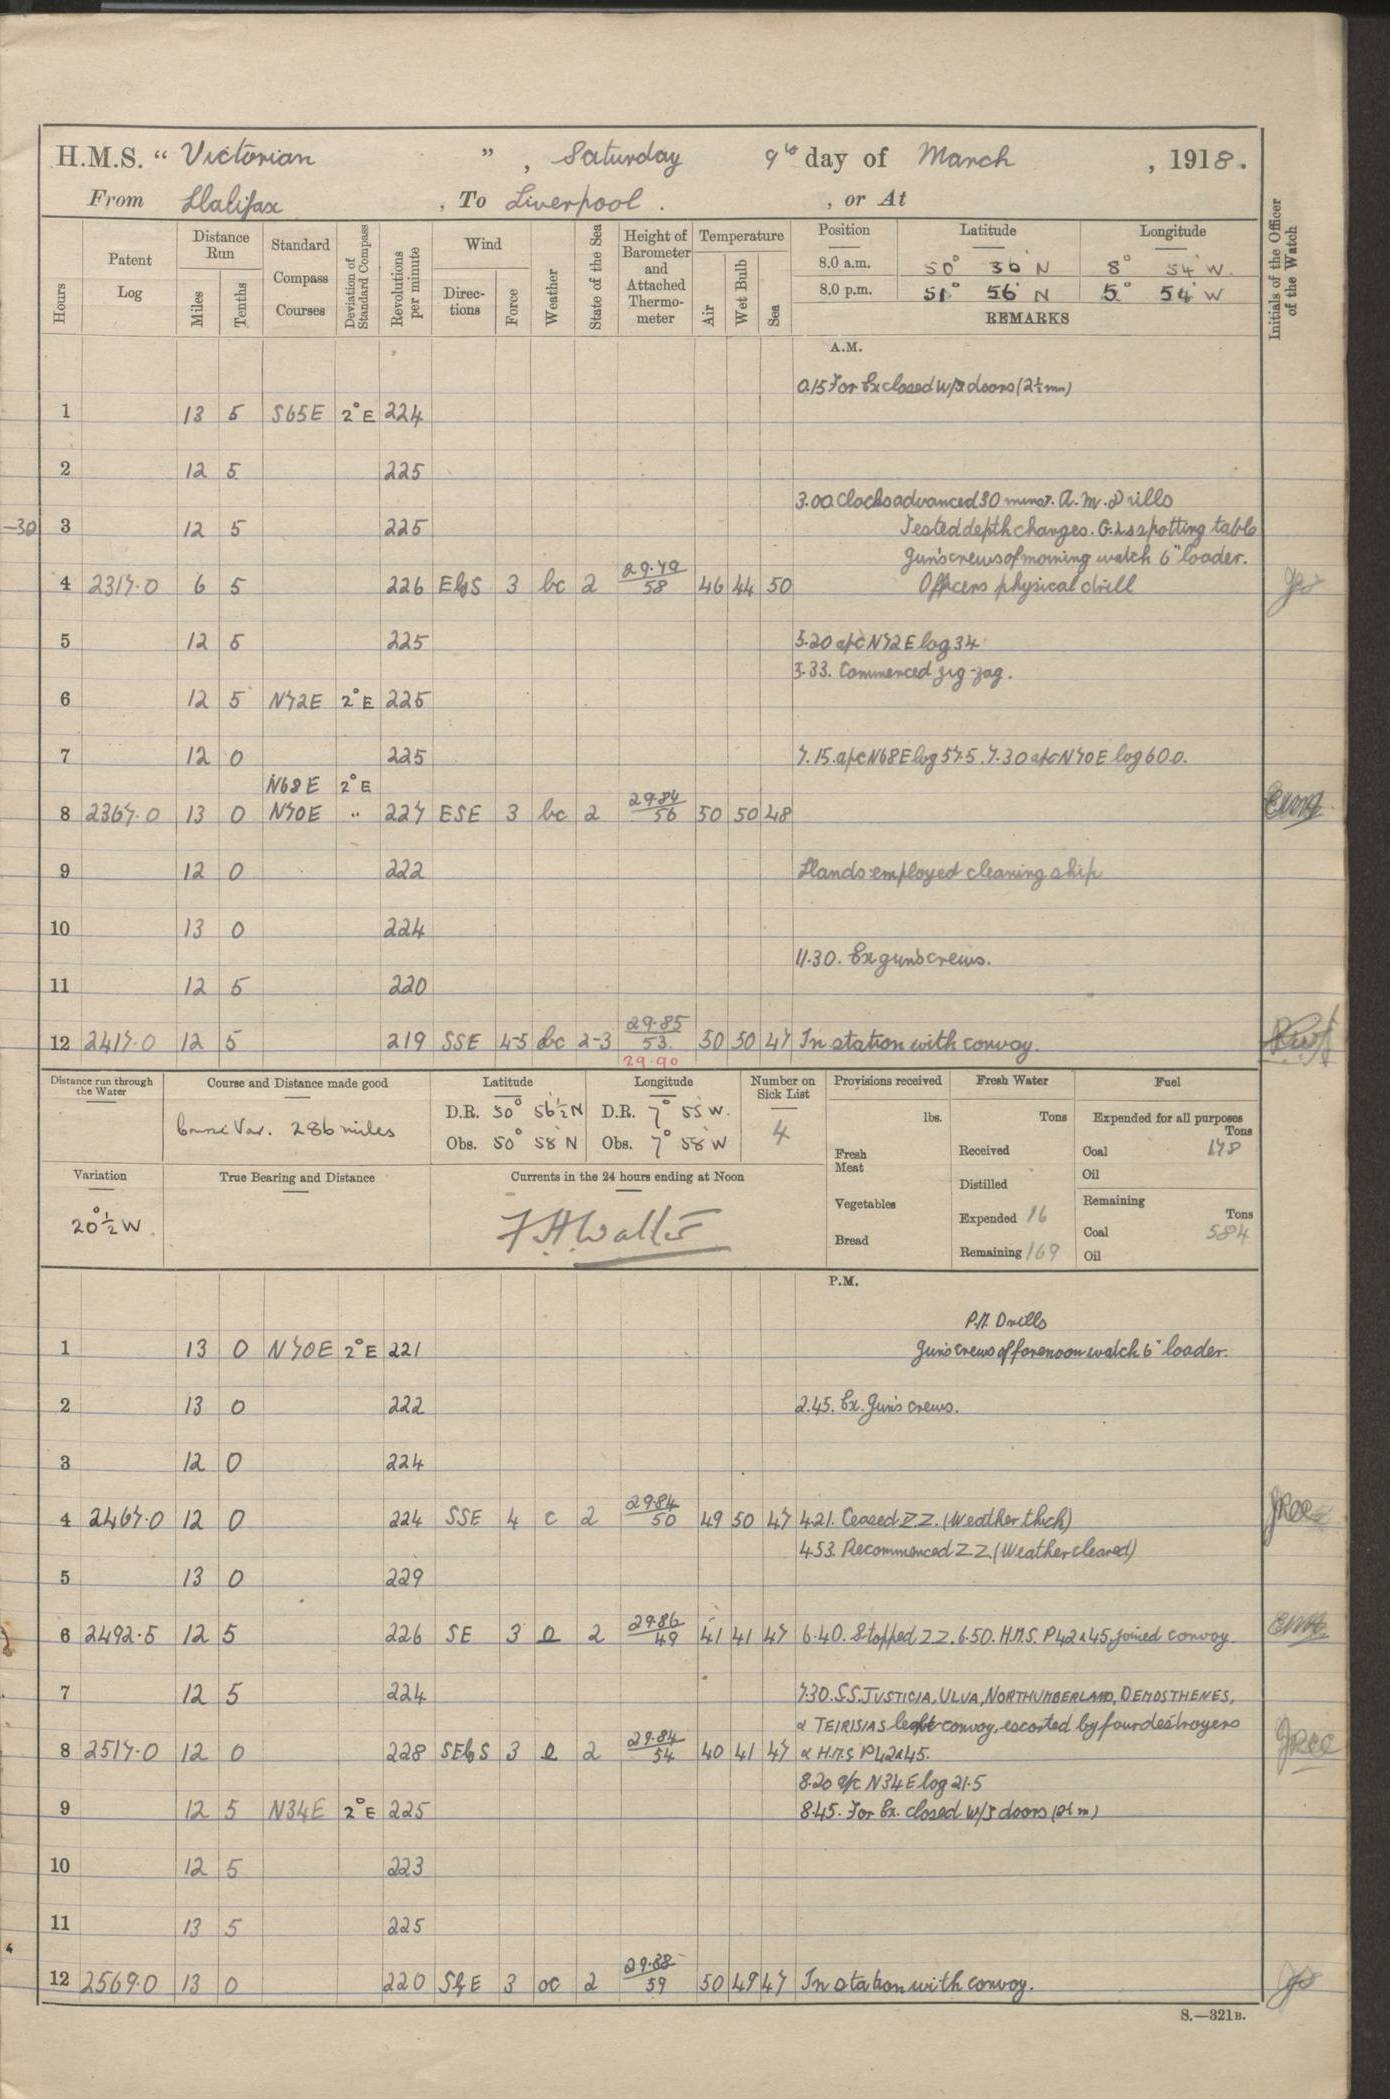 H.M.S. “ Victorian ” , Saturday 9th day of March , 1918.
From Halifax , To Liverpool . , or At
Hours
Patent Log
Distance Run
Miles
Tenths
Standard Compass Courses
Deviation of Standard Compass
Revolutions per minute
Wind
Direc-tions
Force
Weather
State of the Sea
Height of Barometer and Attached Thermo-meter
Temperature
Air
Wet Bulb
Sea
Position Latitude Longitude
8.0 a.m. 50° 36' N 8° 54' W.
8.0 p.m. 51° 56' N 5° 54' W
REMARKS
Initials of the Officer of the Watch
A.M.
0.15 For Ex closed W/T doors (2½ mn)
1 13 5 S65E 2°E 224
2 12 5 225
3.00 Clocks advanced 30 mins. A.M. Drills
-30 3 12 5 225 Tested depth charges. G.Ls spotting table
Gun's crews of morning watch 6" loader.
4 2317.0 6 5 226 EbS 3 bc 2 29.79 58 46 44 50 Officers physical drill
5 12 5 225 5.20 a/c N72E log 34
5.33. Commenced zig-zag.
6 12 5 N72E 2°E 225
7 12 0 225 7.15. a/c N68E log 57.5. 7.30 a/c N70E log 60.0.
N68E 2°E
8 2367.0 13 0 N70E " 227 ESE 3 bc 2 29.84 56 50 50 48
9 12 0 222 Hands employed cleaning ship
10 13 0 224
11.30. Ex gun's crews.
11 12 5 220
12 2417.0 12 5 219 SSE 4-5 bc 2-3 29.85 53 50 50 47 In station with convoy.
29.90
Distance run through the Water
Course and Distance made good
Course Var. 286 miles
Latitude
D.R. 50° 56½' N
Obs. 50° 58' N
Longitude
D.R. 7° 55' W.
Obs. 7° 58' W
Number on Sick List
4
Provisions received
lbs.
Fresh Meat
Vegetables
Bread
Fresh Water
Tons
Received
Distilled
Expended 16
Remaining 169
Fuel
Expended for all purposes
Tons
Coal 178
Oil
Remaining
Tons
Coal 584
Oil
Variation
20½° W.
True Bearing and Distance
Currents in the 24 hours ending at Noon
P.M.
P.M. Drills
1 13 0 N70E 2°E 221 Gun's crews of forenoon watch 6" loader.
2 13 0 222 2.45. Ex. Gun's crews.
3 12 0 224
4 2467.0 12 0 224 SSE 4 c 2 29.84 50 49 50 47 4.21. Ceased Z Z. (Weather thick)
4.53. Recommenced Z Z. (Weather cleared)
5 13 0 229
6 2492.5 12 5 226 SE 3 o 2 29.86 49 41 41 47 6.40. Stopped Z Z. 6.50. H.M.S. P42 & 45, joined convoy
7 12 5 224 7.30. S.S. JUSTICIA, ULUA, NORTHUMBERLAND, DEMOSTHENES,
& TEIRISIAS left convoy, escorted by four destroyers
8 2517.0 12 0 228 SEbS 3 o 2 29.84 54 40 41 47 & H.M.S P42 & 45.
8.20 a/c N34E log 21.5
9 12 5 N34E 2°E 225 8.45. For Ex. closed W/T doors (2½ m)
10 12 5 223
11 13 5 225
12 2569.0 13 0 220 SbE 3 oc 2 29.88 59 50 49 47 In station with convoy.
S.—321B.